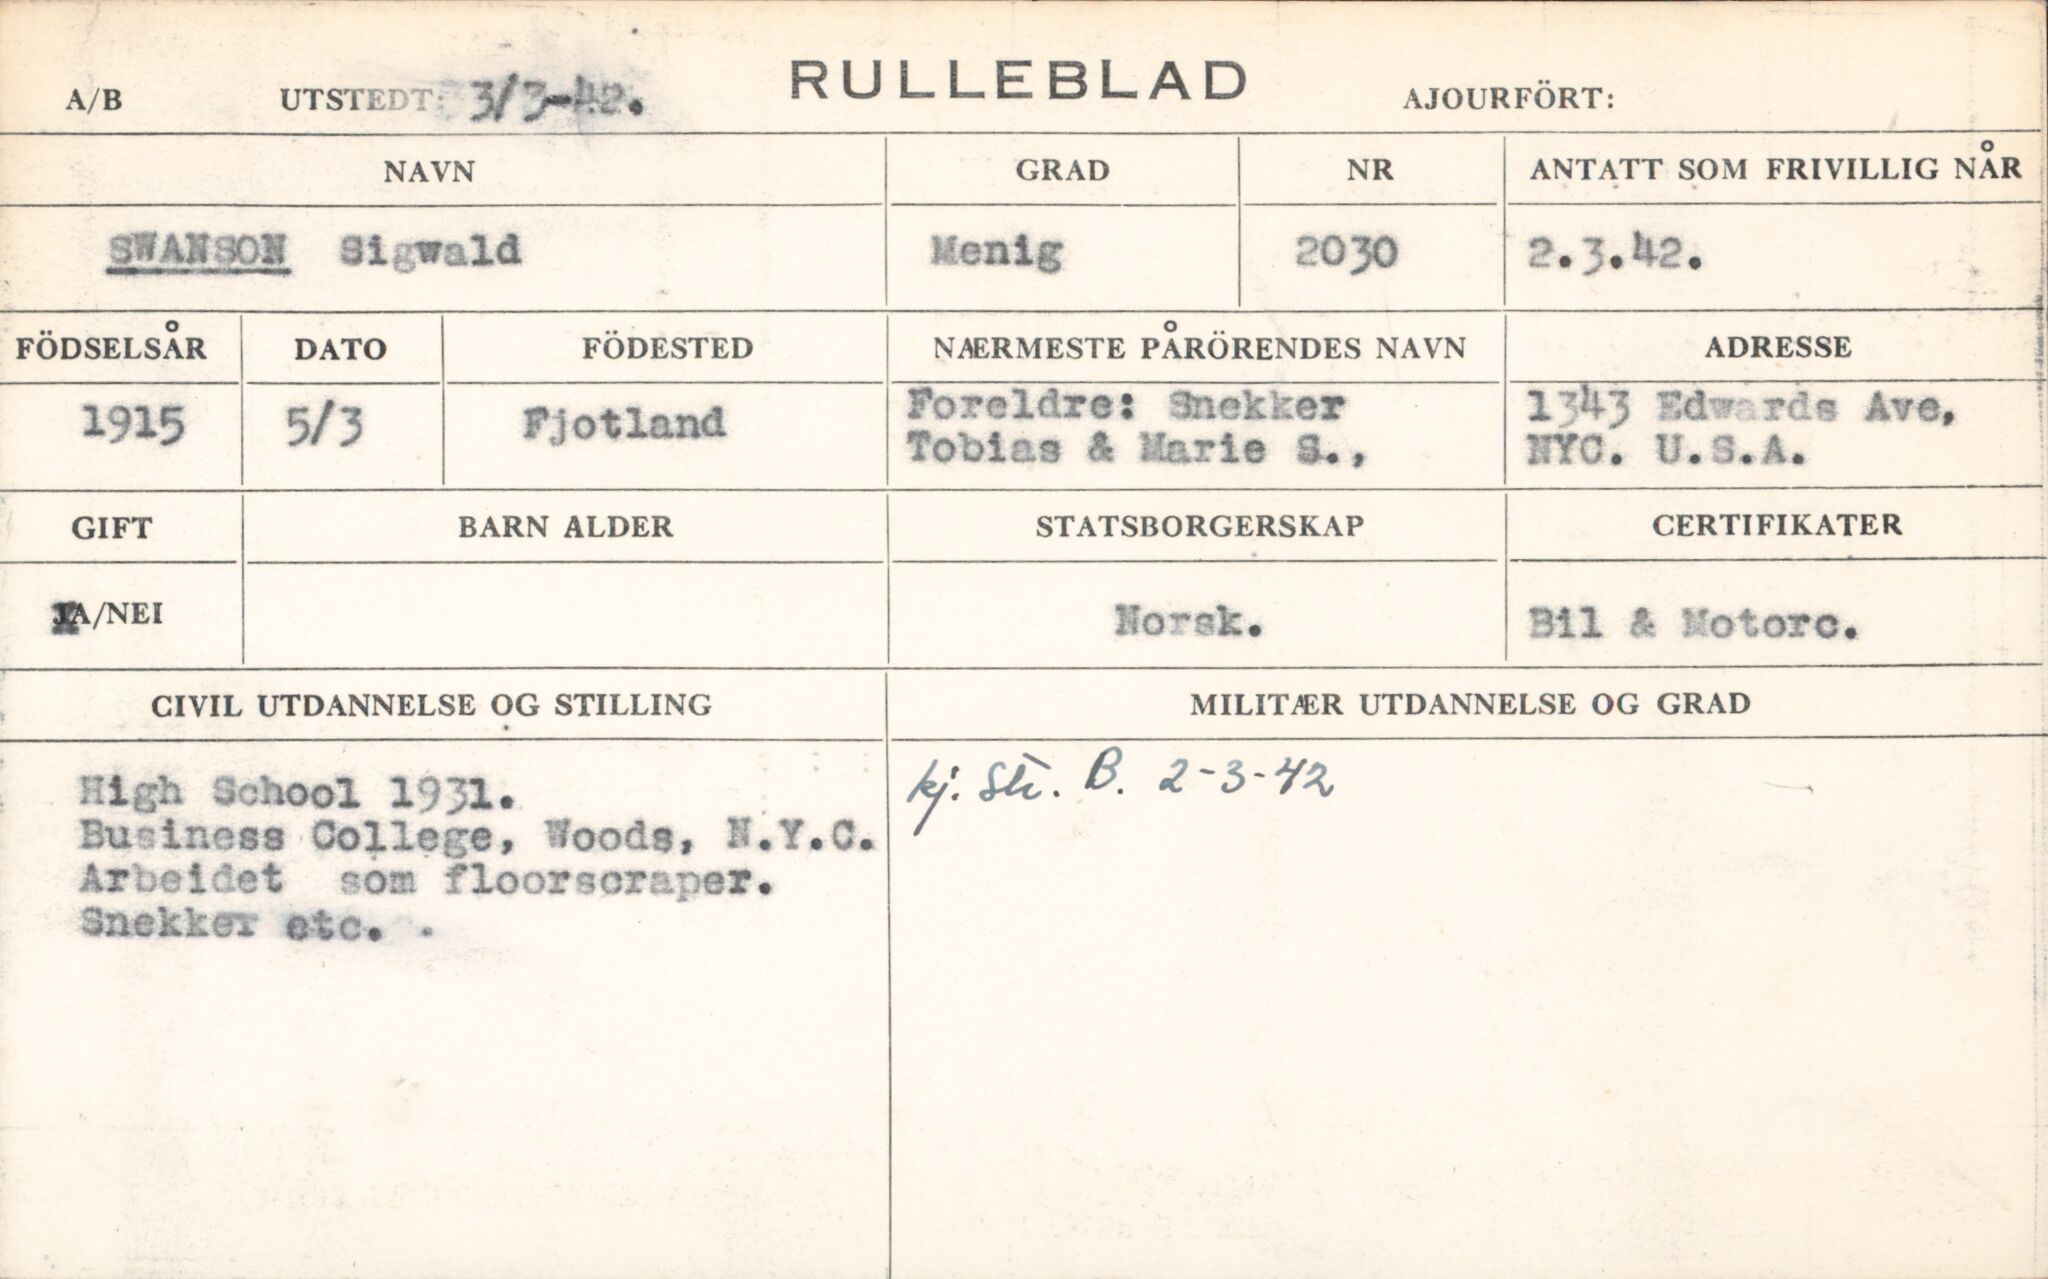 RULLEBLAD
A/B UTSTEDT: 3/3-42. AJOURFÖRT:
NAVN GRAD NR ANTATT SOM FRIVILLIG NÅR
SWANSON Sigwald Menig 2030 2.3.42.
FÖDSELSÅR DATO FÖDESTED NÆRMESTE PÅRÖRENDES NAVN ADRESSE
1915 5/3 Fjotland Foreldre: Snekker 1343 Edwards Ave,
Tobias & Marie S., NYC. U.S.A.
GIFT BARN ALDER STATSBORGERSKAP CERTIFIKATER
JA/NEI Norsk. Bil & Motorc.
CIVIL UTDANNELSE OG STILLING MILITÆR UTDANNELSE OG GRAD
High School 1931. kj. Str. B. 2-3-42
Business College, Woods, N.Y.C.
Arbeidet som floorscraper.
Snekker etc.